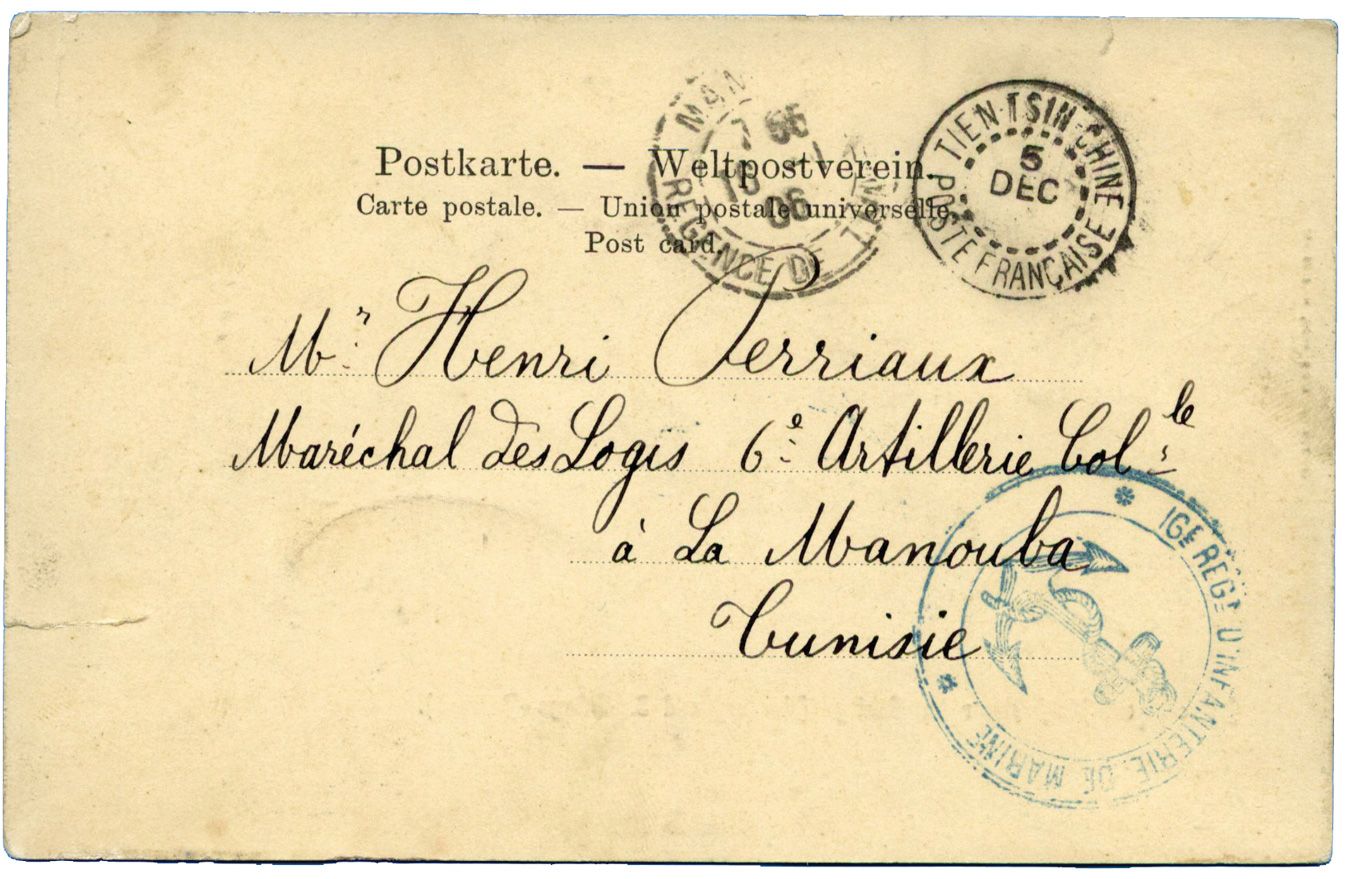 Postkarte. — Weltpostverein.
Carte postale. — Union postale universelle.
Post card.
TIEN-TSIN-CHINE
5
DEC
POSTE FRANÇAISE
REGENCE DE
Mr. Henri Perriaux
Maréchal des Logis 6e Artillerie Colle
à La Manouba
Tunisie
16E REGt D'INFANTERIE DE MARINE